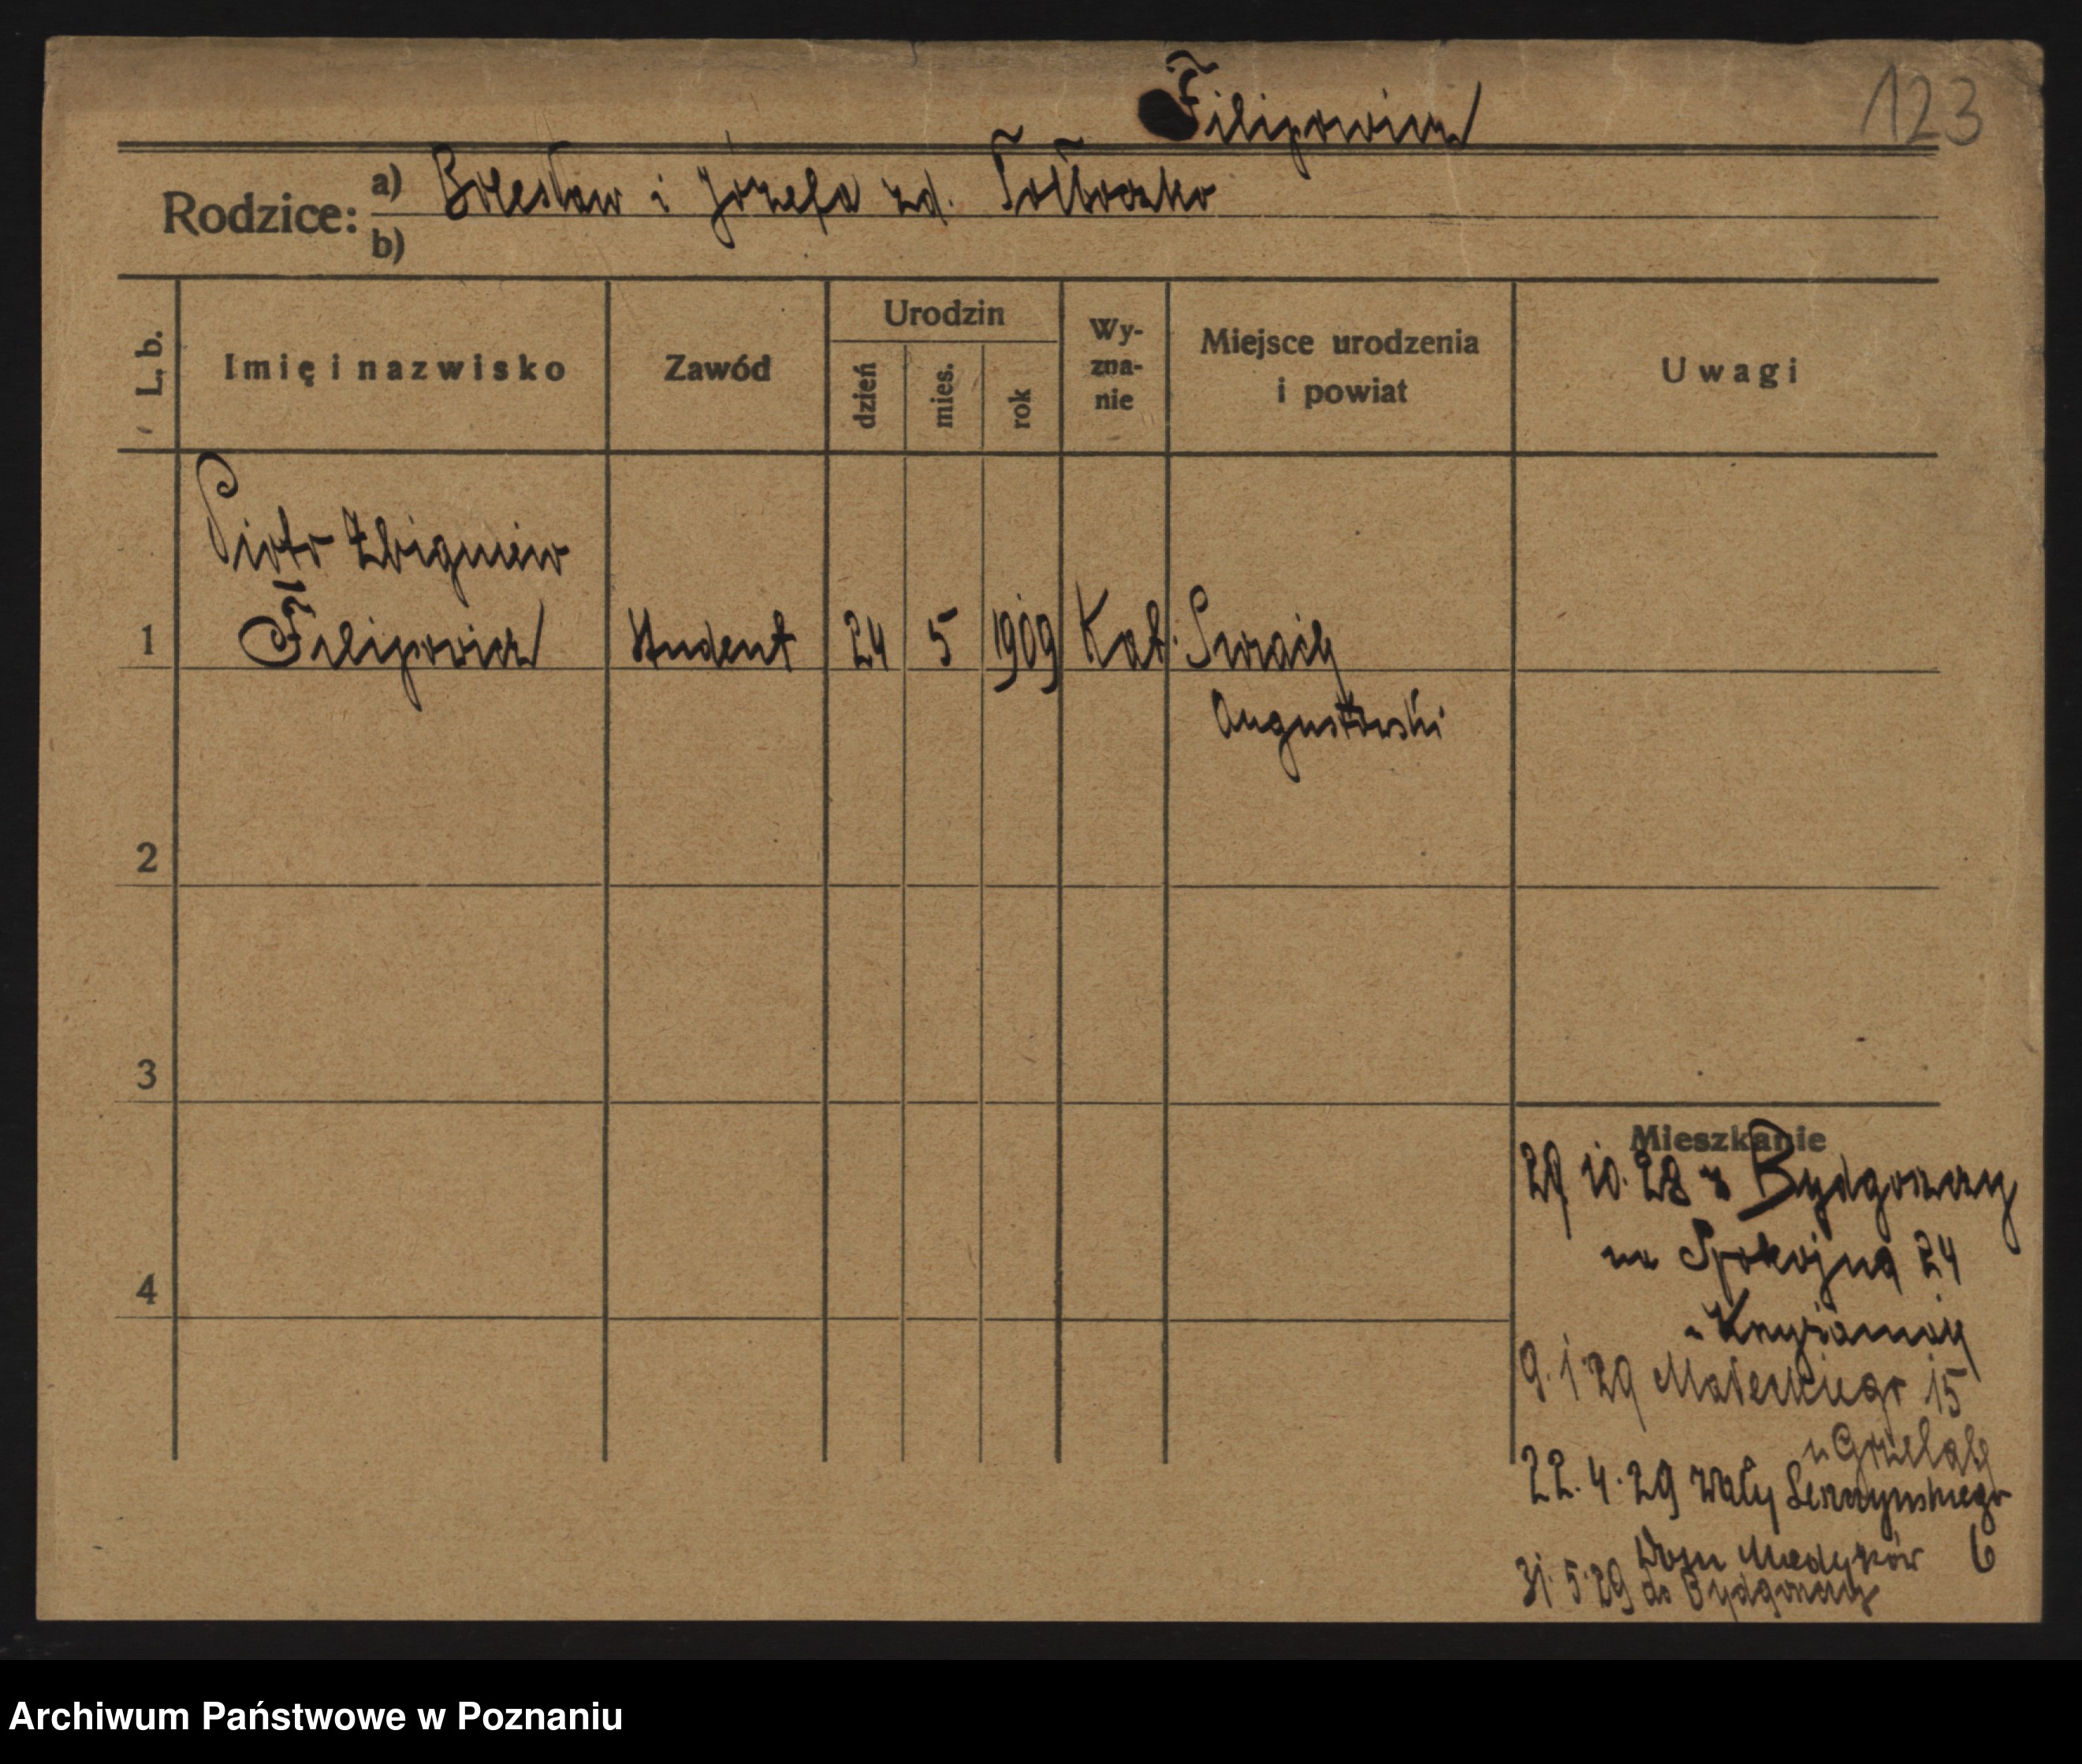 Filipowicz
123
Rodzice: a) Bolesław i Józefa zd. Tołłoczko
b)
L. b.
Imię i nazwisko
Zawód
Urodzin
dzień
mies.
rok
Wy-
zna-
nie
Miejsce urodzenia
i powiat
Uwagi
Piotr Zbigniew
1 Filipowicz Student 24 5 1909 Kat.
Augustowski
2
3
4
Mieszkanie
29 10. 28 z Bydgoszczy
na Spokojna 24
9. 1 29 Małeckiego 15
u
22. 4. 29 Wały Leszczyńskiego
Dom Medyków 6
31. 5. 29 do Bydgoszczy
Archiwum Państwowe w Poznaniu